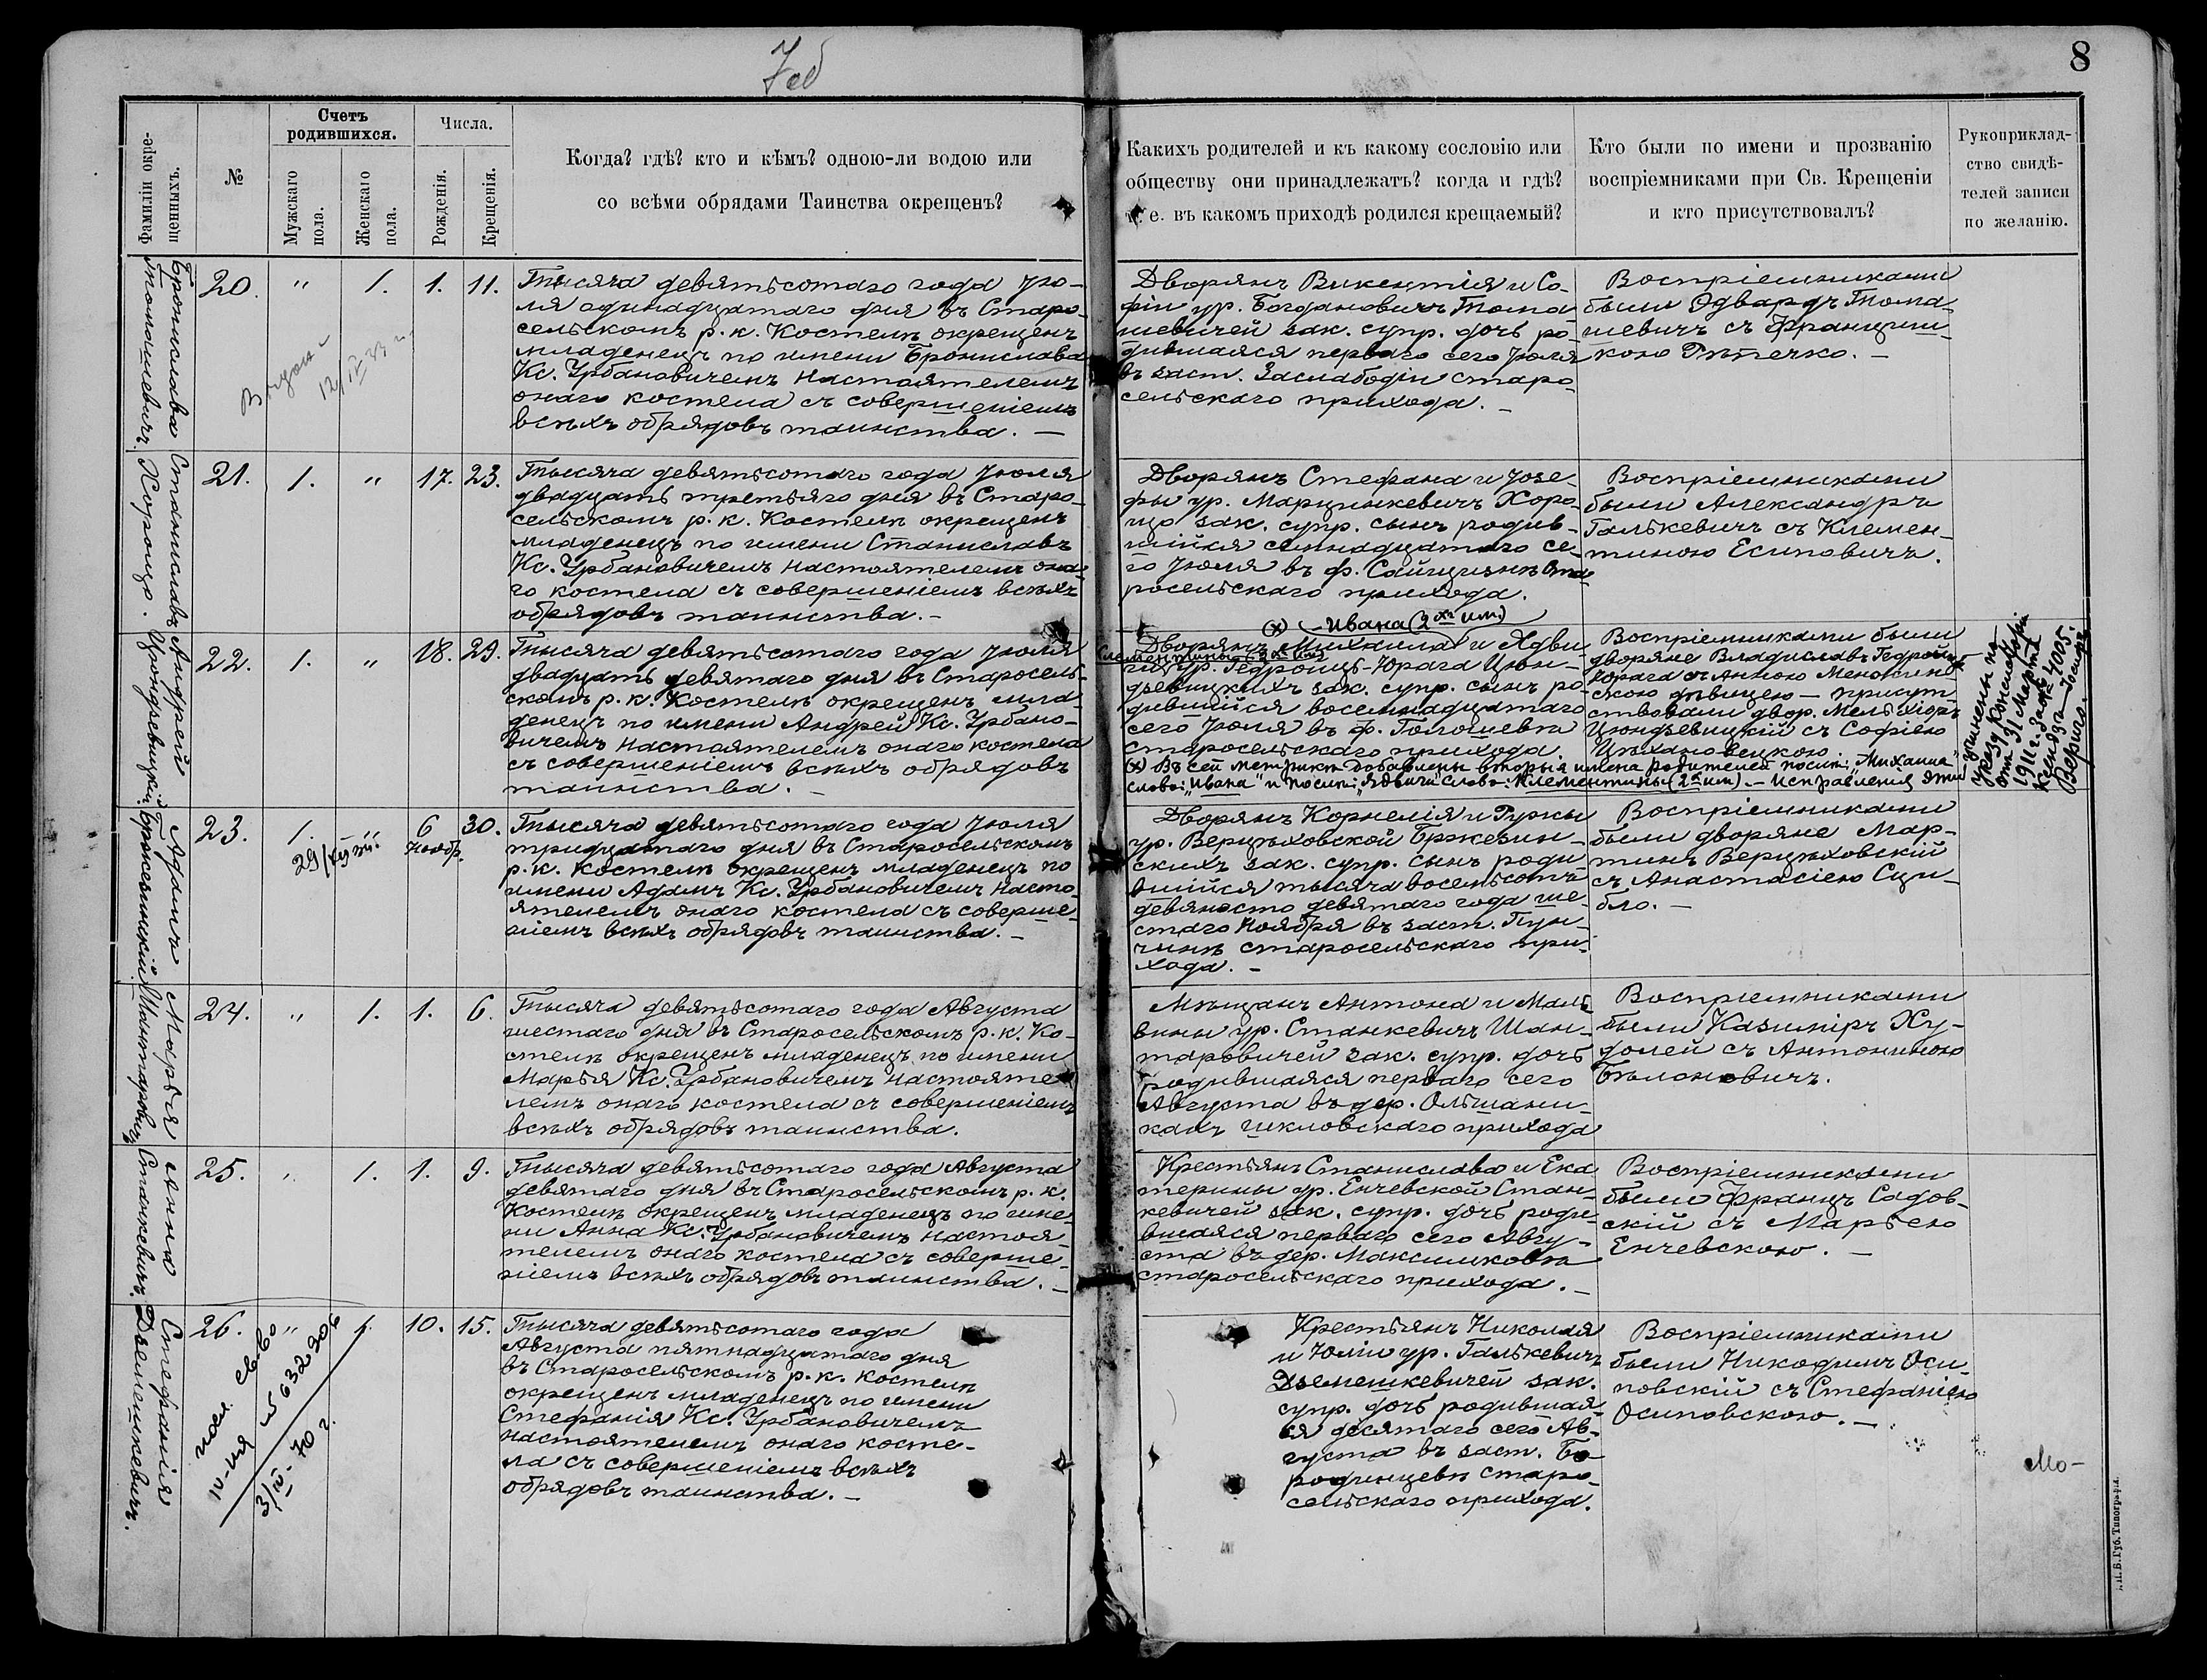 7об
8
Фамиліи окре-
щенныхъ.
№
Счетъ
родившихся.
Мужскаго
пола.
Женскаго
пола.
Числа.
Рожденія.
Крещенія.
Когда? гдѣ? кто и кѣмъ? одною-ли водою или
со всѣми обрядами Таинства окрещенъ?
Какихъ родителей и къ какому сословію или
обществу они принадлежатъ? когда и гдѣ?
т. е. въ какомъ приходѣ родился крещаемый?
Кто были по имени и прозванію
воспріемниками при Св. Крещеніи
и кто присутствовалъ?
Рукоприклад-
ство свидѣ-
телей записи
по желанію.
Бронислава
Томашевичъ.
20. " 1. 1. 11.
12/IV 33 г.
Тысяча девятьсотаго года Ію-
ля одинадцатаго дня въ Старо-
сельскомъ р. к. Костелѣ окрещенъ
младенецъ по имени Бронислава
Кс. Урбановичемъ Настоятелемъ
онаго костела съ совершеніемъ
всѣхъ обрядовъ таинства. —
Дворянъ Викентія и Со-
фіи ур. Богдановичъ Тома-
шевичей зак. супр. дочь ро-
дившаяся перваго сего Іюля
въ заст. Заслабодіи старо-
сельскаго прихода. —
Воспріемниками
были Эдвардъ Тома-
шевичъ съ Францыш-
кою Рѣтечко. —
Станиславъ
Хороцо.
21. 1. " 17. 23.
Тысяча девятьсотаго года Іюля
двадцать третьяго дня въ Старо-
сельскомъ р. к. Костелѣ окрещенъ
младенецъ по имени Станиславъ
Кс. Урбановичемъ Настоятелемъ она-
го костела съ совершеніемъ всѣхъ
обрядовъ таинства. —
Дворянъ Стефана и Юзе-
фы ур. Марцинкевичъ Хоро-
що зак. супр. сынъ родив-
шійся семнадцатаго се-
го Іюля въ ф. Сайщизнѣ Ста-
росельскаго прихода.
Воспріемниками
были Александръ
Галькевичъ съ Клемен-
тиною Есиповичъ.
Андрей
Цюндзевицкій.
22. 1. " 18. 29.
Тысяча девятьсотаго года Іюля
двадцать девятаго дня въ Старосель-
скомъ р. к. Костелѣ окрещенъ мла-
денецъ по имени Андрей Кс. Урбано-
вичемъ Настоятелемъ онаго костела
съ совершеніемъ всѣхъ обрядовъ
таинства. —
(х) Ивана (2хъ им.)
Дворянъ Михаила и Ядви-
Клементины (2хъ им.)
ги ур. Гедройцъ-Юрага Цюн-
дзевицкихъ зак. супр. сынъ ро-
дившійся восемнадцатаго
сего Іюля въ ф. Голошевѣ
старосельскаго прихода.
(х) Въ сей метрикѣ добавлены вторыя имена родителей послѣ: „Михаила"
слово: „Ивана" и послѣ: „Ядвиги" слово: Клементины (2хъ им.) — исправленія эти
Воспріемниками были
дворяне Владиславъ Гедройцъ
Юрага съ Анною
скою дѣвицею — присут-
ствовали двор. Мельхіоръ
Цюндзевицкій съ Софіею
Цѣхановецкою.
учинены по
указу Консисторіи
отъ 31 Марта
1911 г. за № 4005.
Ксендзъ Іосифъ
Верига.
Адамъ
Бржезинскій.
23. 1. " 6 Ноябр. 30.
Тысяча девятьсотаго года Іюля
тридцатаго дня въ Старосельскомъ
р. к. Костелѣ окрещенъ младенецъ по
имени Адамъ Кс. Урбановичемъ Насто-
ятелемъ онаго костела съ соверше-
ніемъ всѣхъ обрядовъ таинства. —
Дворянъ Корнелія и
ур. Верцѣховской Бржезин-
скихъ зак. супр. сынъ роди-
вшійся тысяча восемьсотъ
девяносто девятаго года ше-
стаго Ноября въ заст. Пун-
чинѣ старосельскаго при-
хода. —
Воспріемниками
были дворяне Мар-
тинъ Верцѣховскій
съ Анастасіею Сци-
бло. —
Марья
Шантаровичъ.
24. " 1. 1. 6.
Тысяча девятьсотаго года Августа
шестаго дня въ Старосельскомъ р. к. Ко-
стелѣ окрещенъ младенецъ по имени
Марья Кс. Урбановичемъ Настояте-
лемъ онаго костела съ совершеніемъ
всѣхъ обрядовъ таинства.
Мѣщанъ Антона и Маль-
вины ур. Станкевичъ Шан-
таровичей зак. супр. дочь
родившаяся перваго сего
Августа въ дер. Ольшани-
кахъ Шкловскаго прихода
Воспріемниками
были Казиміръ Ху-
долей съ Антониною
Бѣлоновичъ.
Анна
Станкевичъ.
25. " 1. 1. 9.
Тысяча девятьсотаго года Августа
девятаго дня въ Старосельскомъ р. к.
Костелѣ окрещенъ младенецъ по име-
ни Анна Кс. Урбановичемъ Настоя-
телемъ онаго костела съ соверше-
ніемъ всѣхъ обрядовъ таинства. —
Крестьянъ Станислава и Ека-
терины ур. Енчевской Стан-
кевичей зак. супр. дочь роди-
вшаяся перваго сего Авгу-
ста въ дер. Максимковѣ
старосельскаго прихода. —
Воспріемниками
были Францъ Садов-
скій съ Марьею
Енчевскою. —
Стефанія
Дземешкевичъ.
26. " 1. 10. 15.
св-во
3/IV-70 г.
Тысяча девятьсотаго года
Августа пятнадцатаго дня
въ Старосельскомъ р. к. костелѣ
окрещенъ младенецъ по имени
Стефанія Кс. Урбановичемъ
Настоятелемъ онаго косте-
ла съ совершеніемъ всѣхъ
обрядовъ таинства. —
Крестьянъ Николая
и Юліи ур. Галькевичъ
Дземешкевичей зак.
супр. дочь родившая-
ся десятаго сего Ав-
густа въ заст. Бо-
родинцевѣ старо-
сельскаго прихода.
Воспріемниками
были Никодимъ Оси-
повскій съ Стефаніею
Осиповскою. —
Мо-
Губ. Типографія.